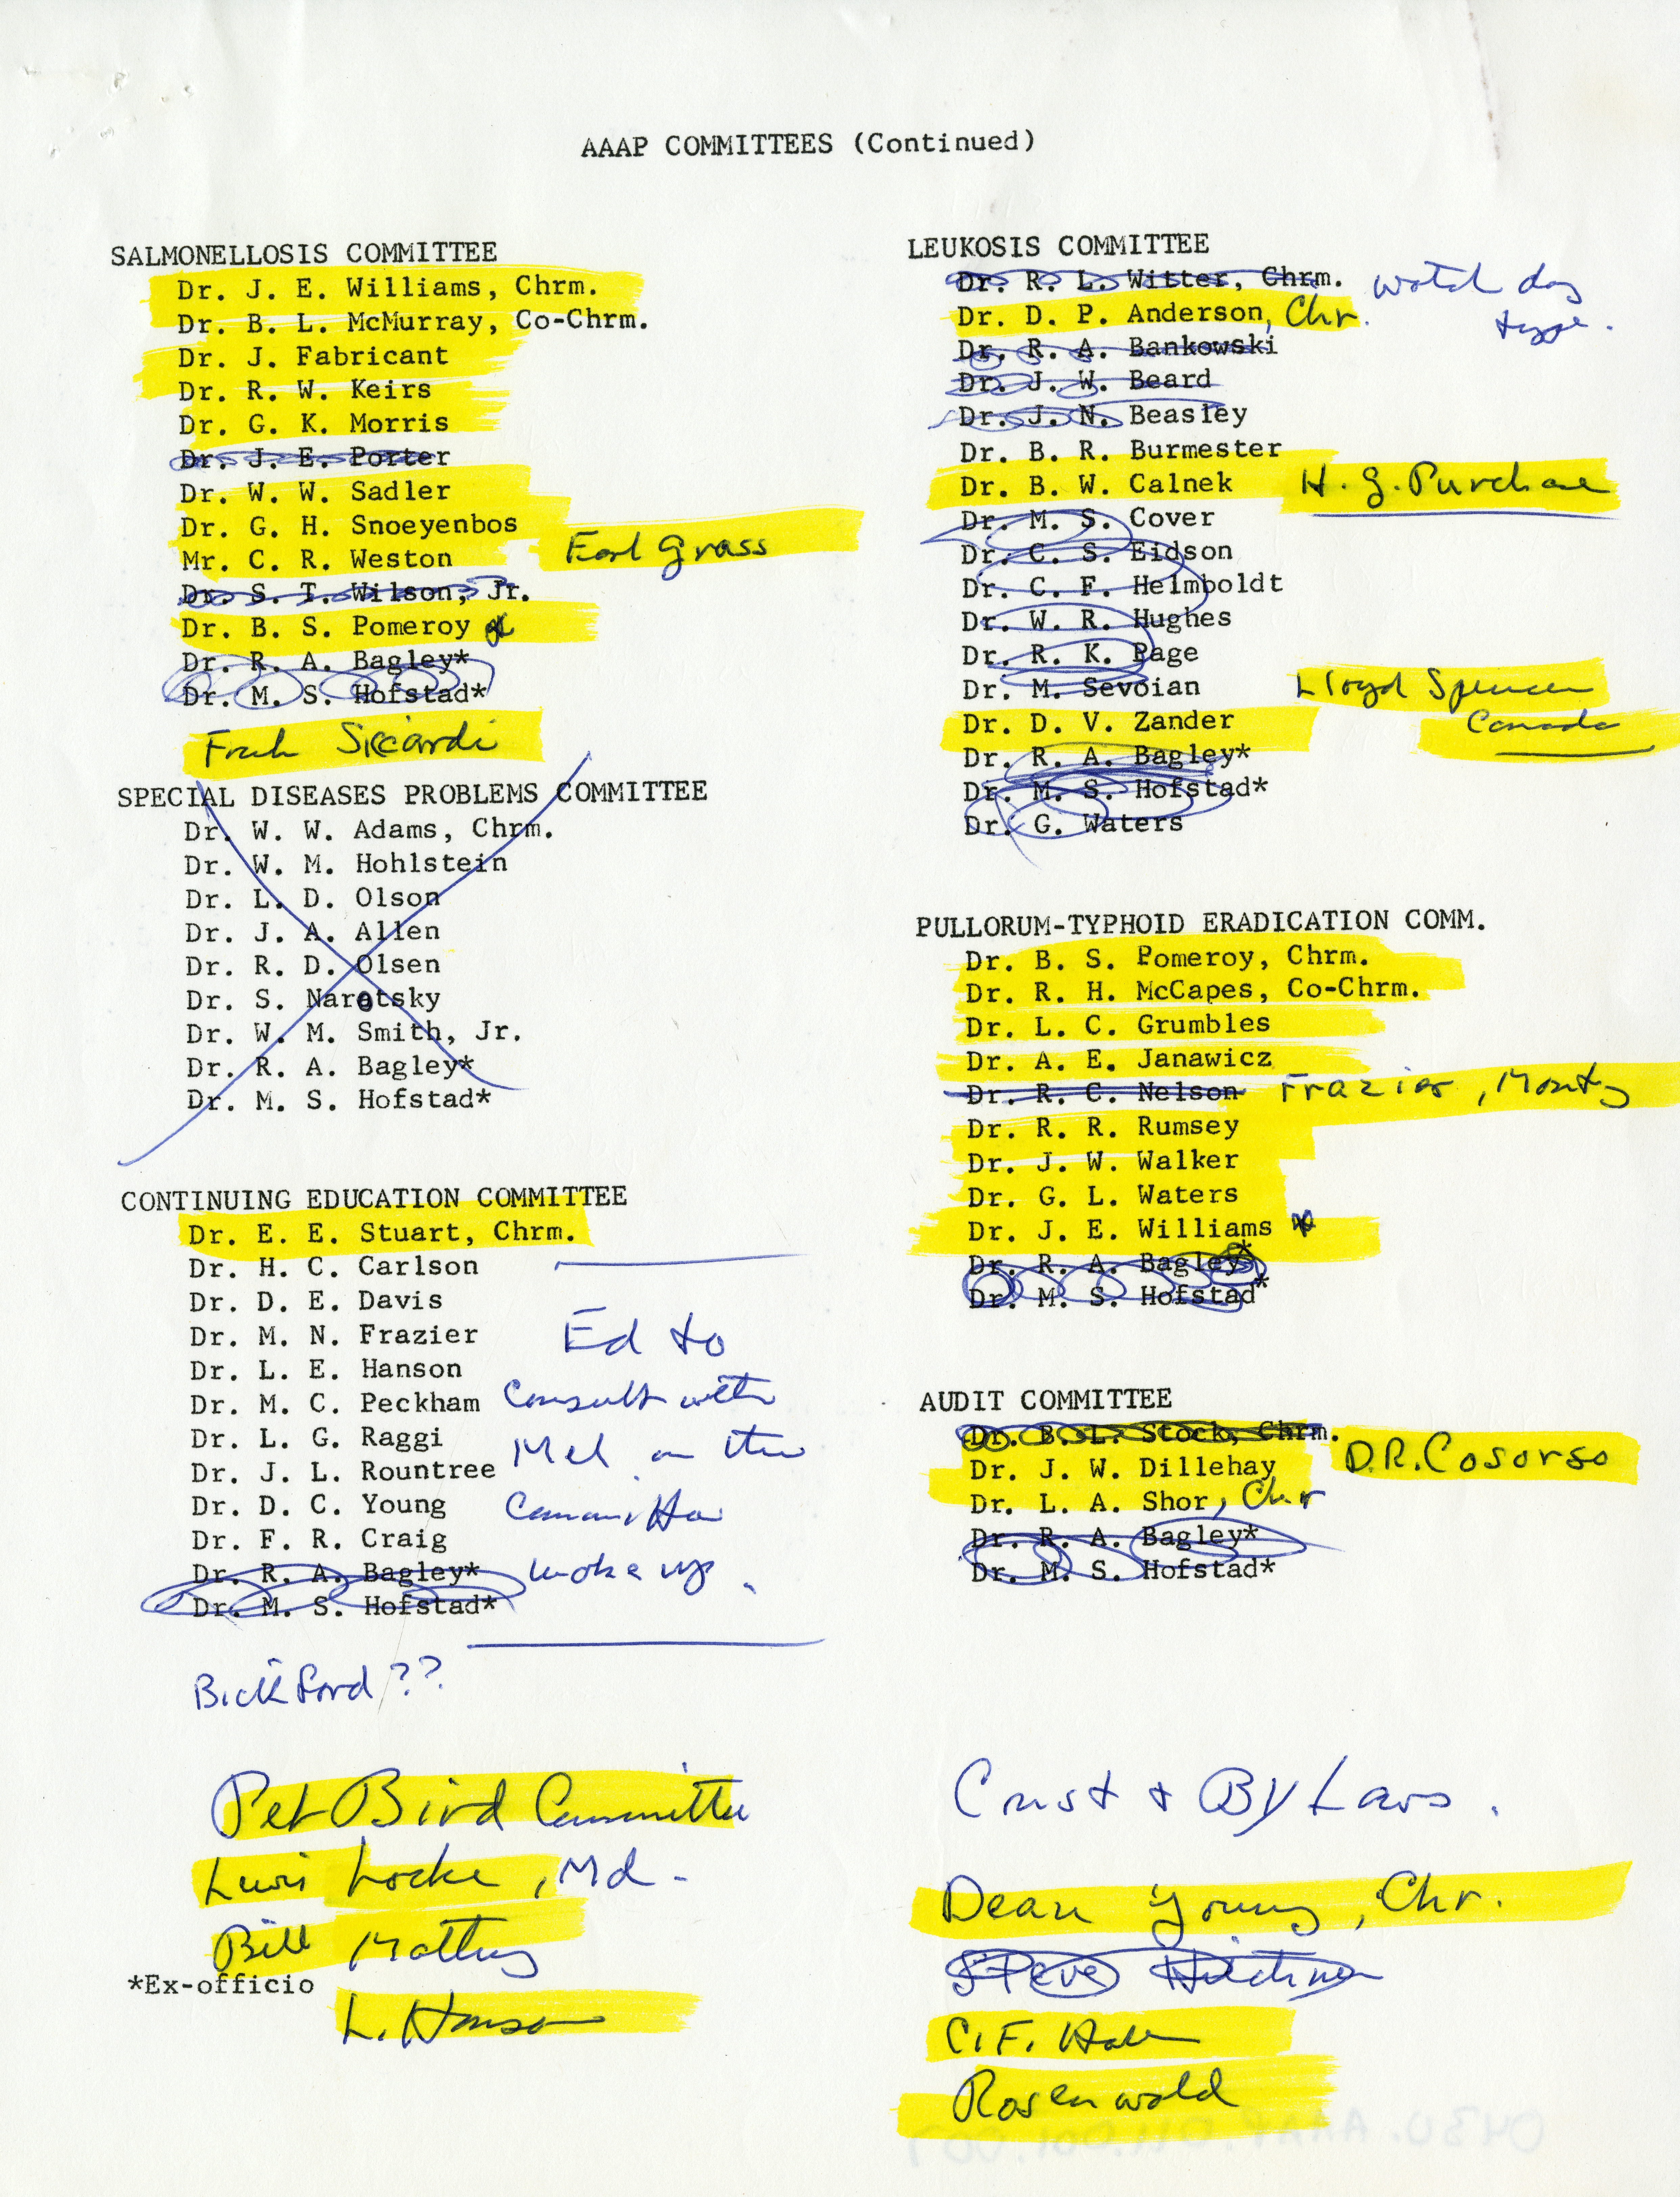 AAAP COMMITTEES (Continued)
SALMONELLOSIS COMMITTEE
Dr. J. E. Williams, Chrm.
Dr. B. L. McMurray, Co-Chrm.
Dr. J. Fabricant
Dr. R. W. Keirs
Dr. G. K. Morris
Dr. J. E. Porter
Dr. W. W. Sadler
Dr. G. H. Snoeyenbos
Mr. C. R. Weston
Earl Grass
Dr. S. T. Wilson, Jr.
Dr. B. S. Pomeroy
Dr. R. A. Bagley*
Dr. M. S. Hofstad*
Frank Siccardi
SPECIAL DISEASES PROBLEMS COMMITTEE
Dr. W. W. Adams, Chrm.
Dr. W. M. Hohlstein
Dr. L. D. Olson
Dr. J. A. Allen
Dr. R. D. Olsen
Dr. S. Narotsky
Dr. W. M. Smith, Jr.
Dr. R. A. Bagley*
Dr. M. S. Hofstad*
CONTINUING EDUCATION COMMITTEE
Dr. E. E. Stuart, Chrm.
Dr. H. C. Carlson
Dr. D. E. Davis
Dr. M. N. Frazier
Dr. L. E. Hanson
Dr. M. C. Peckham
Dr. L. G. Raggi
Dr. J. L. Rountree
Dr. D. C. Young
Dr. F. R. Craig
Dr. R. A. Bagley*
Dr. M. S. Hofstad*
Ed to
Consult with
Mel on the
Committee
make up.
Bickford??
Pet Bird Committee
Locke, Md.
Bill Mattus
*Ex-officio
L. Hanson
LEUKOSIS COMMITTEE
Dr. R. L. Witter, Chrm.
watch dog
type.
Dr. D. P. Anderson, Chr.
Dr. R. A. Bankowski
Dr. J. W. Beard
Dr. J. N. Beasley
Dr. B. R. Burmester
Dr. B. W. Calnek
H. G. Purchase
Dr. M. S. Cover
Dr. C. S. Eidson
Dr. C. F. Helmboldt
Dr. W. R. Hughes
Dr. R. K. Page
Dr. M. Sevoian
Lloyd Spencer
Canada
Dr. D. V. Zander
Dr. R. A. Bagley*
Dr. M. S. Hofstad*
Dr. G. Waters
PULLORUM-TYPHOID ERADICATION COMM.
Dr. B. S. Pomeroy, Chrm.
Dr. R. H. McCapes, Co-Chrm.
Dr. L. C. Grumbles
Dr. A. E. Janawicz
Dr. R. C. Nelson Frazier, Monty
Dr. R. R. Rumsey
Dr. J. W. Walker
Dr. G. L. Waters
Dr. J. E. Williams
Dr. R. A. Bagley*
Dr. M. S. Hofstad*
AUDIT COMMITTEE
Dr. B. L. Stock, Chrm.
D.R. Cosorso
Dr. J. W. Dillehay
Dr. L. A. Shor, Chr
Dr. R. A. Bagley*
Dr. M. S. Hofstad*
Const + By Laws.
Dean Young, Chr.
Steve
C. F. Hall
Rosenwald